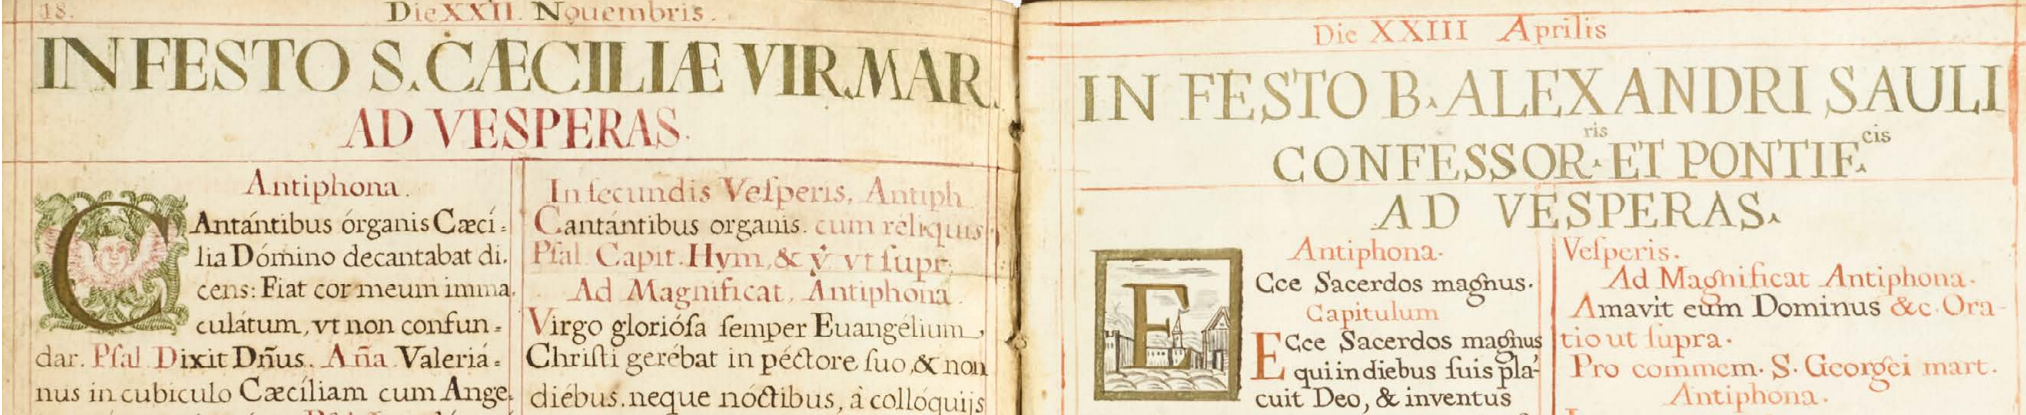 18.
Die XXII. Nouembris.
IN FESTO S. CÆCILIÆ VIR. MAR.
AD VESPERAS.
Antiphona.
CAntántibus órganis Cæcí-
lia Dómino decantabat di.
cens: Fiat cor meum imma.
culátum, vt non confun-
dar. Psal. Dixit Dñus. Aña Valeriá-
nus in cubiculo Cæcíliam cum Ange
In secundis Vesperis, Antiph.
Cantántibus organis. cum réliquis.
Psal. Capit. Hym. & ꝟ. vt supr.
Ad Magnificat, Antiphona.
Virgo gloriósa semper Euangélium
Christi gerébat in péctore suo, & non
diébus, neque nóctibus, à collóquijs
Die XXIII Aprilis
IN FESTO B. ALEXANDRI SAULI
CONFESSORris. ET PONTIF.cis
AD VESPERAS.
Antiphona.
ECce Sacerdos magnus.
Capitulum
ECce Sacerdos magnus
qui in diebus suis plá-
cuit Deo, & inventus
Vesperis.
Ad Magnificat Antiphona.
Amavit eum Dominus &c. Ora-
tio ut supra.
Pro commem. S. Georgei mart.
Antiphona.